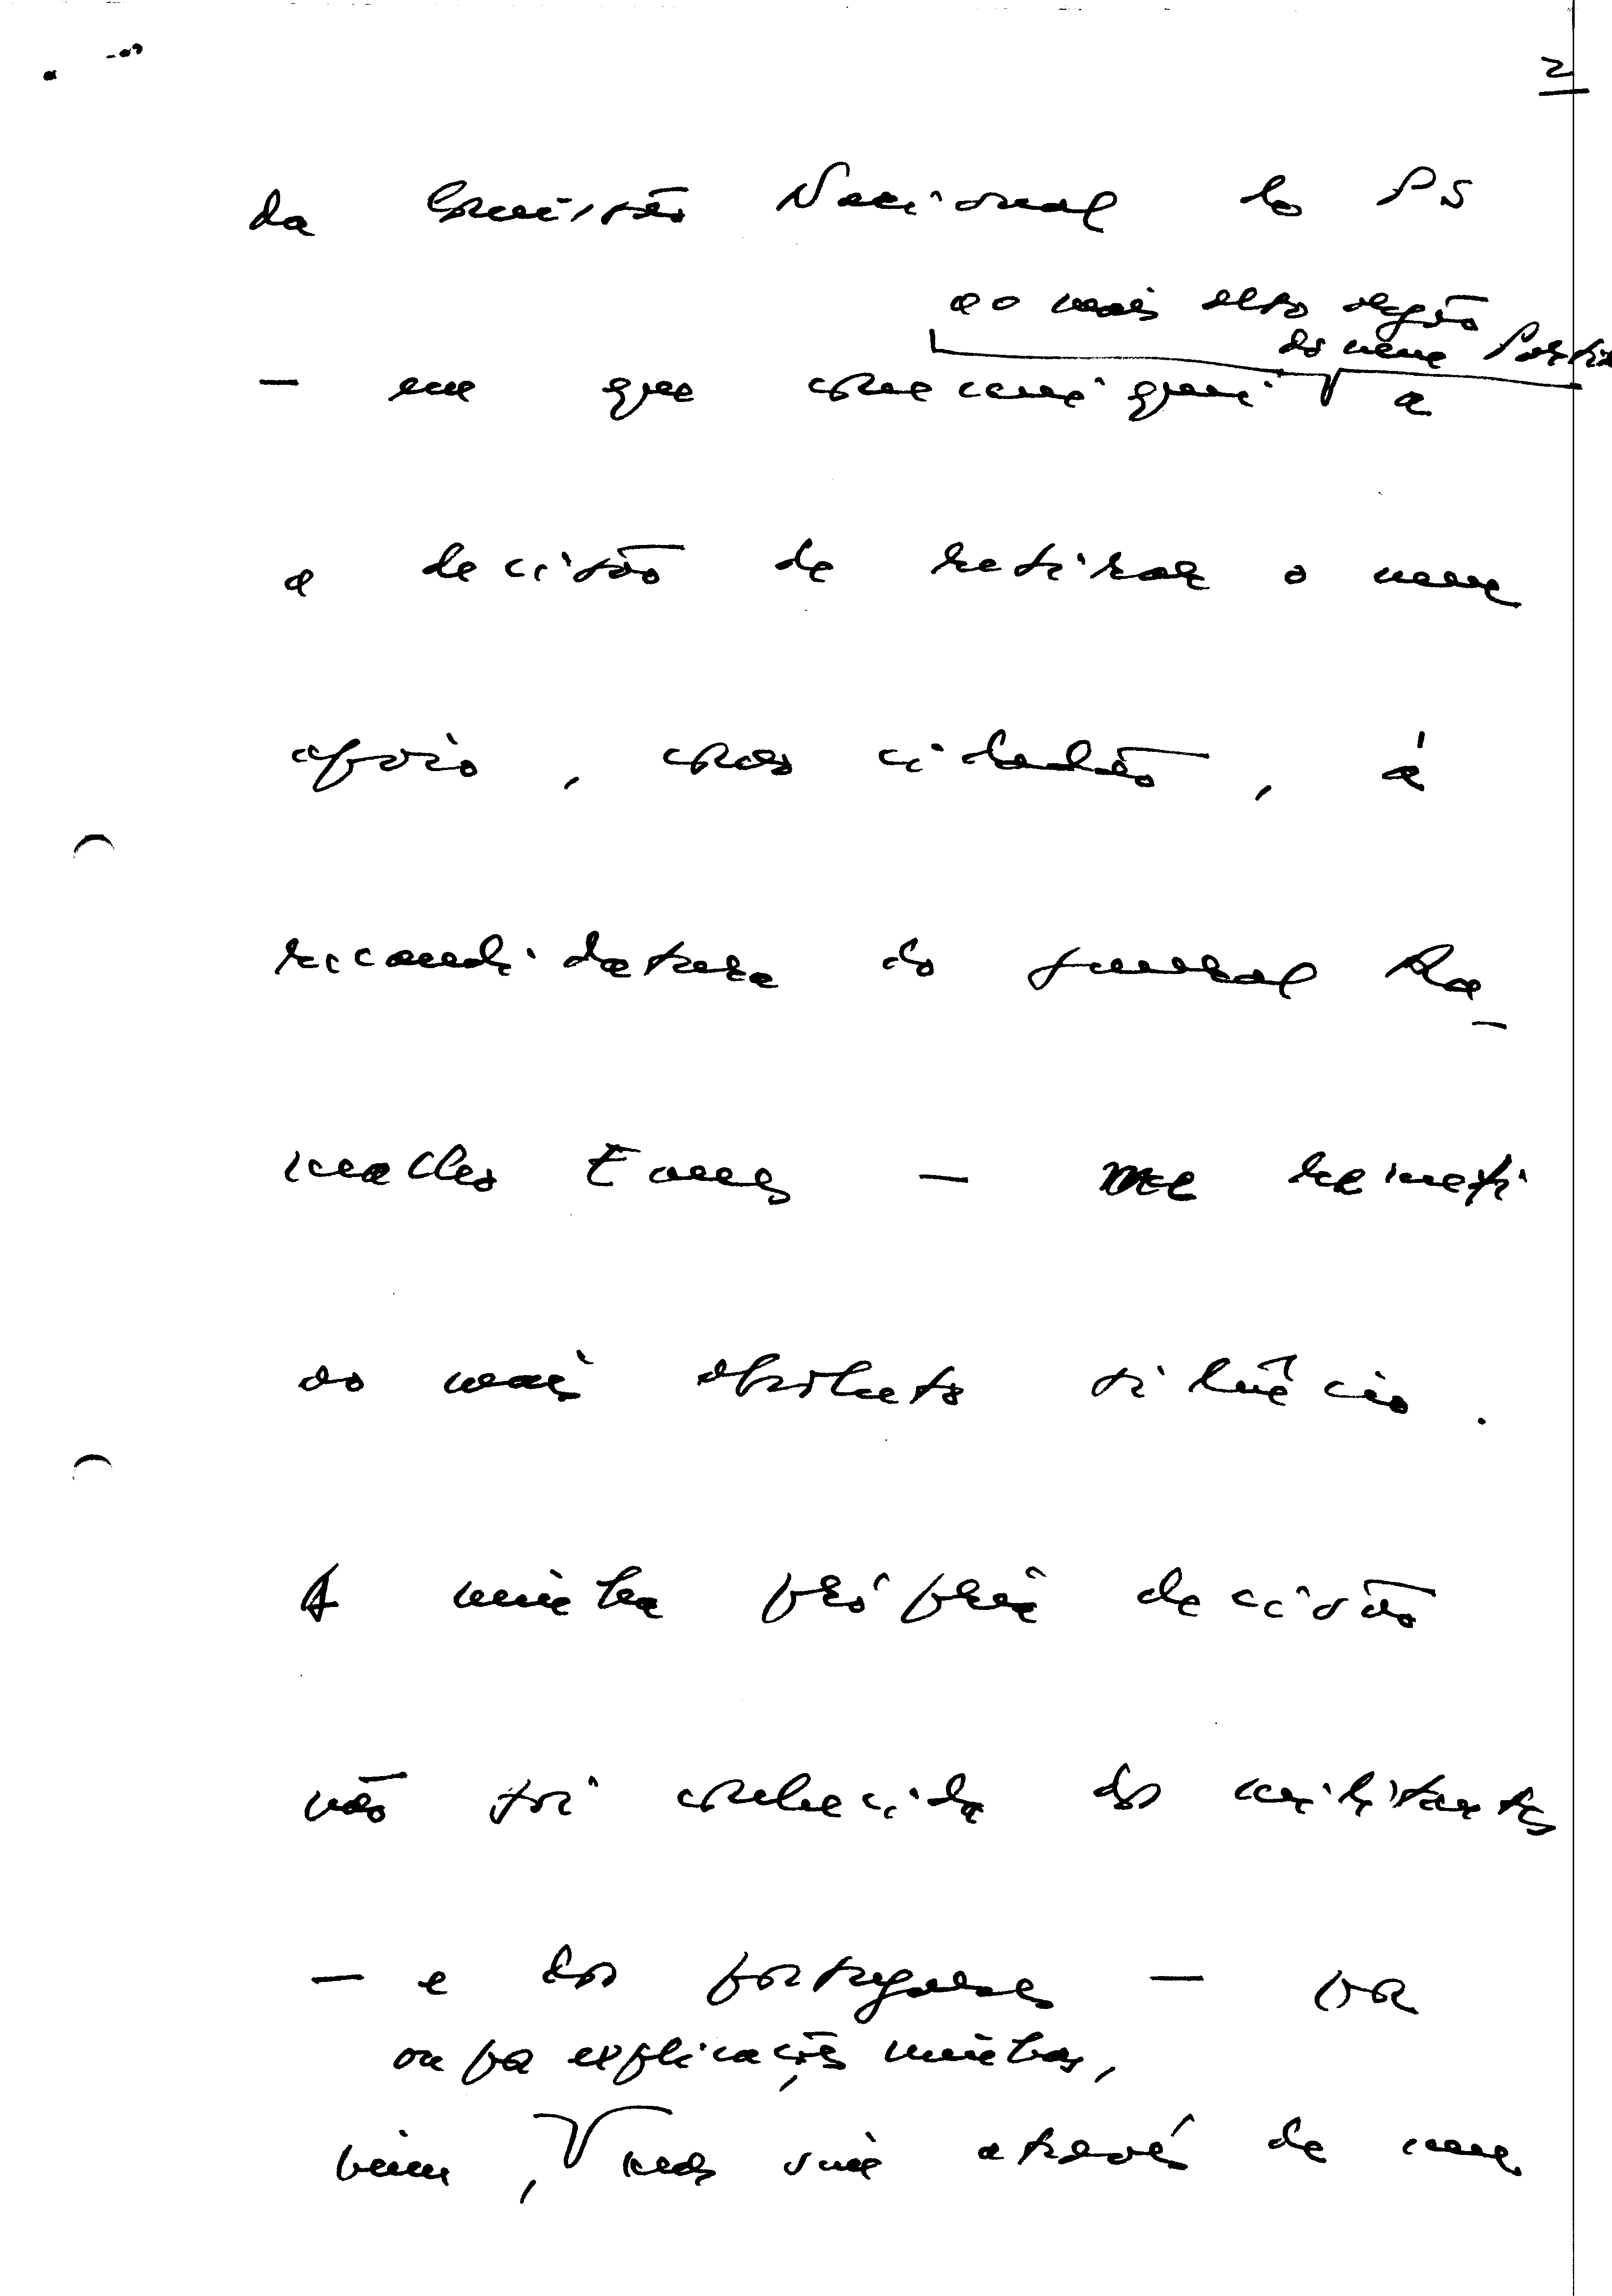 2
da Comissão Nacional do PS
ao mais alto órgão
do meu Partido
— em que comuniquei a
a decisão de retirar o meu
apoio, como cidadão, à
recandidatura do general Ra-
malho Eanes — me remeti
ao mais absoluto silêncio.
A minha própria decisão
não foi conhecida dos militantes
— e dos portugueses — por
ou por explicações minhas,
mim, mas sim através de uma